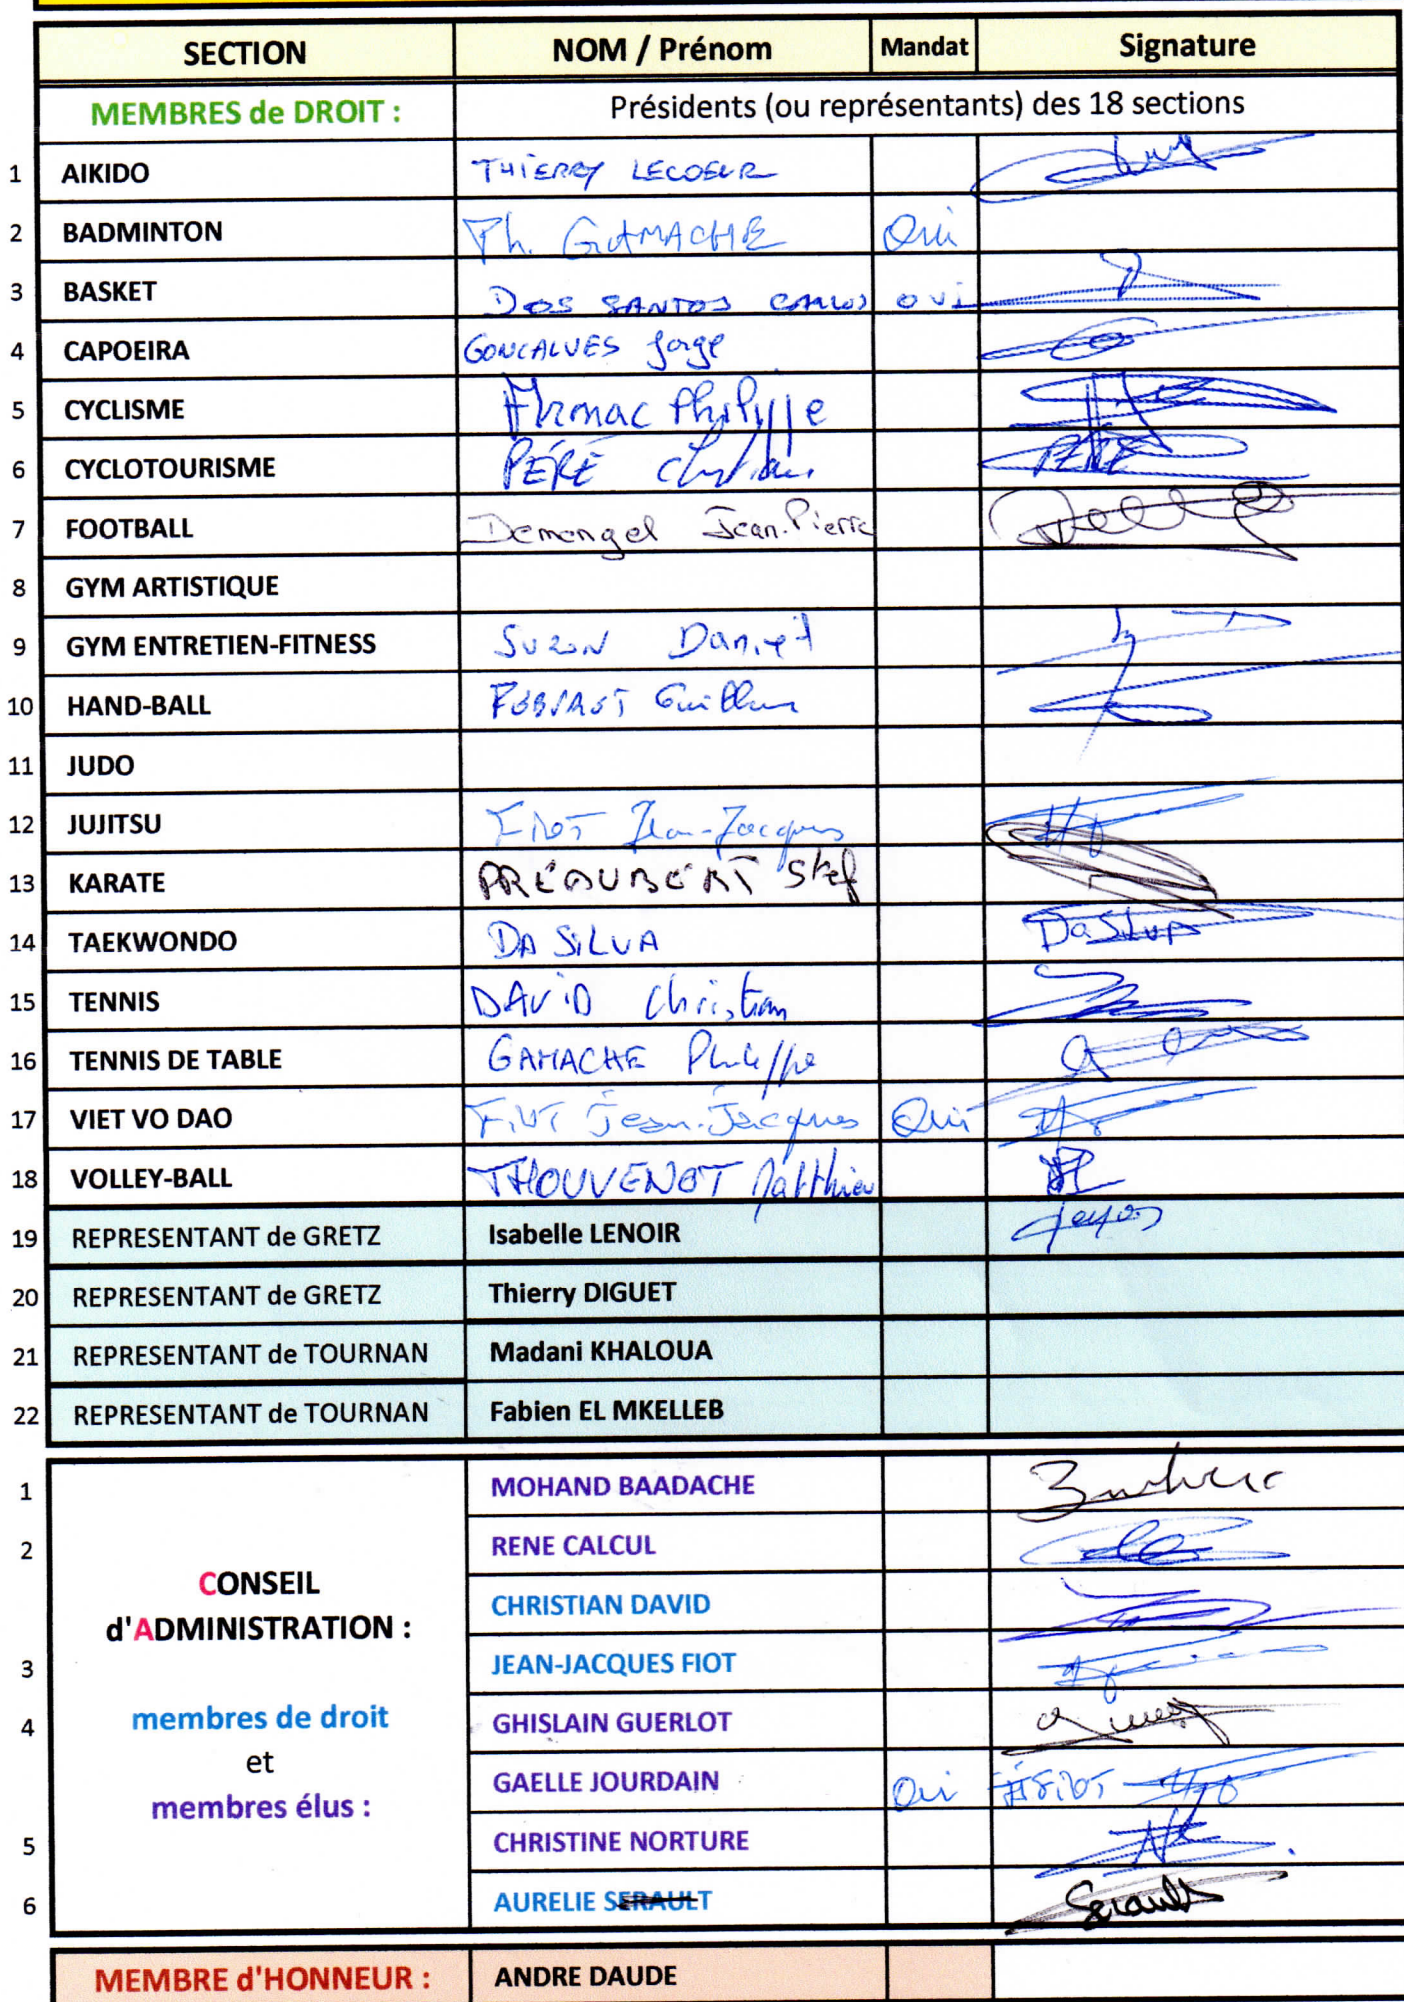 SECTION NOM / Prénom Mandat Signature
MEMBRES de DROIT : Présidents (ou représentants) des 18 sections
1 AIKIDO THIERRY LECOEUR
2 BADMINTON Ph. GAMACHE Oui
3 BASKET DOS SANTOS CARLOS OUI
4 CAPOEIRA GONCALVES Jorge
5 CYCLISME Philippe
6 CYCLOTOURISME PÉRÉ Christian PÉRÉ
7 FOOTBALL Demengel Jean-Pierre
8 GYM ARTISTIQUE
9 GYM ENTRETIEN-FITNESS SUZON Daniel
10 HAND-BALL Guillaume
11 JUDO
12 JUJITSU FIOT Jean-Jacques
13 KARATE PRÉAUBERT Stef
14 TAEKWONDO DA SILVA Da Silva
15 TENNIS DAVID Christian
16 TENNIS DE TABLE GAMACHE Philippe
17 VIET VO DAO FIOT Jean-Jacques Oui
18 VOLLEY-BALL THOUVENOT Matthieu
19 REPRESENTANT de GRETZ Isabelle LENOIR
20 REPRESENTANT de GRETZ Thierry DIGUET
21 REPRESENTANT de TOURNAN Madani KHALOUA
22 REPRESENTANT de TOURNAN Fabien EL MKELLEB
CONSEIL
d'ADMINISTRATION :
membres de droit
et
membres élus :
1 MOHAND BAADACHE
2 RENE CALCUL
CHRISTIAN DAVID
3 JEAN-JACQUES FIOT
4 GHISLAIN GUERLOT
GAELLE JOURDAIN Oui FIOT
5 CHRISTINE NORTURE
6 AURELIE SERAULT Serault
MEMBRE d'HONNEUR : ANDRE DAUDE